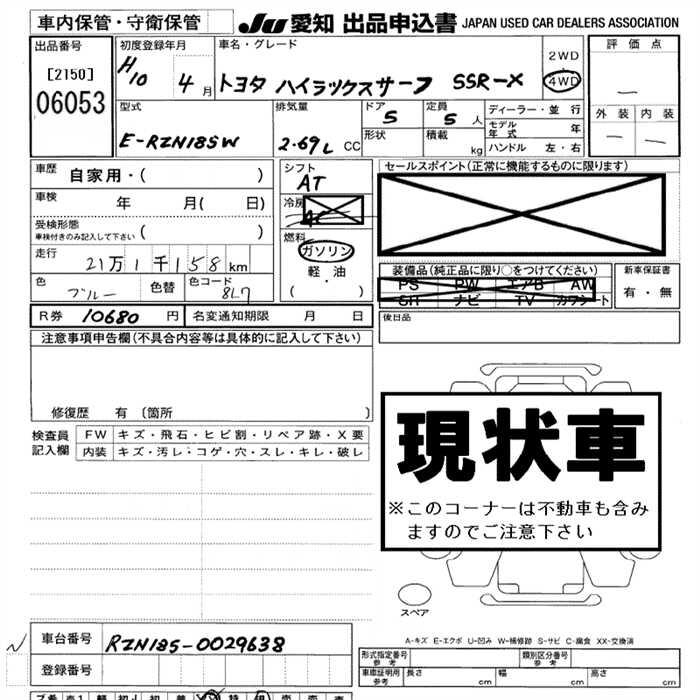 車内保管・守衛保管
JU 愛知 出品申込書 JAPAN USED CAR DEALERS ASSOCIATION
出品番号
[2150]
06053
初度登録年月
H10 4月
車名・グレード
トヨタ ハイラックスサーフ SSR-X
2WD
4WD
評価点
—
外装 内装
— —
型式
E-RZN185W
排気量
2.69L CC
ドア
5
形状
定員
5人
積載
kg
ディーラー・並行
モデル年式 年
ハンドル 左・右
車歴 自家用・( )
車検 年 月( 日)
受検形態
車検付きのみ記入して下さい ( )
走行 21万1千158km
色 ブルー 色替 色コード 8L7
シフト
AT
冷房
AC
燃料
ガソリン
軽・油
( )
セールスポイント(正常に機能するものに限ります)
装備品(純正品に限り○をつけてください)
PS PW エアB AW
SR ナビ TV カワシート
新車保証書
有・無
後日品
R券 10680円 名変通知期限 月 日
注意事項申告欄(不具合内容等は具体的に記入して下さい)
修復歴 有〔箇所 〕
検査員記入欄
FW キズ・飛石・ヒビ割・リペア跡・X要
内装 キズ・汚レ・コゲ・穴・スレ・キレ・破レ
現状車
※このコーナーは不動車も含み
ますのでご注意下さい
スペア
A-キズ E-エクボ U-凹み W-補修跡 S-サビ C-腐食 XX-交換済
車台番号 RZN185-0029638
登録番号
形式指定番号
参考
類別区分番号
参考
車庫証明用
参考
長さ cm 幅 cm 高さ cm